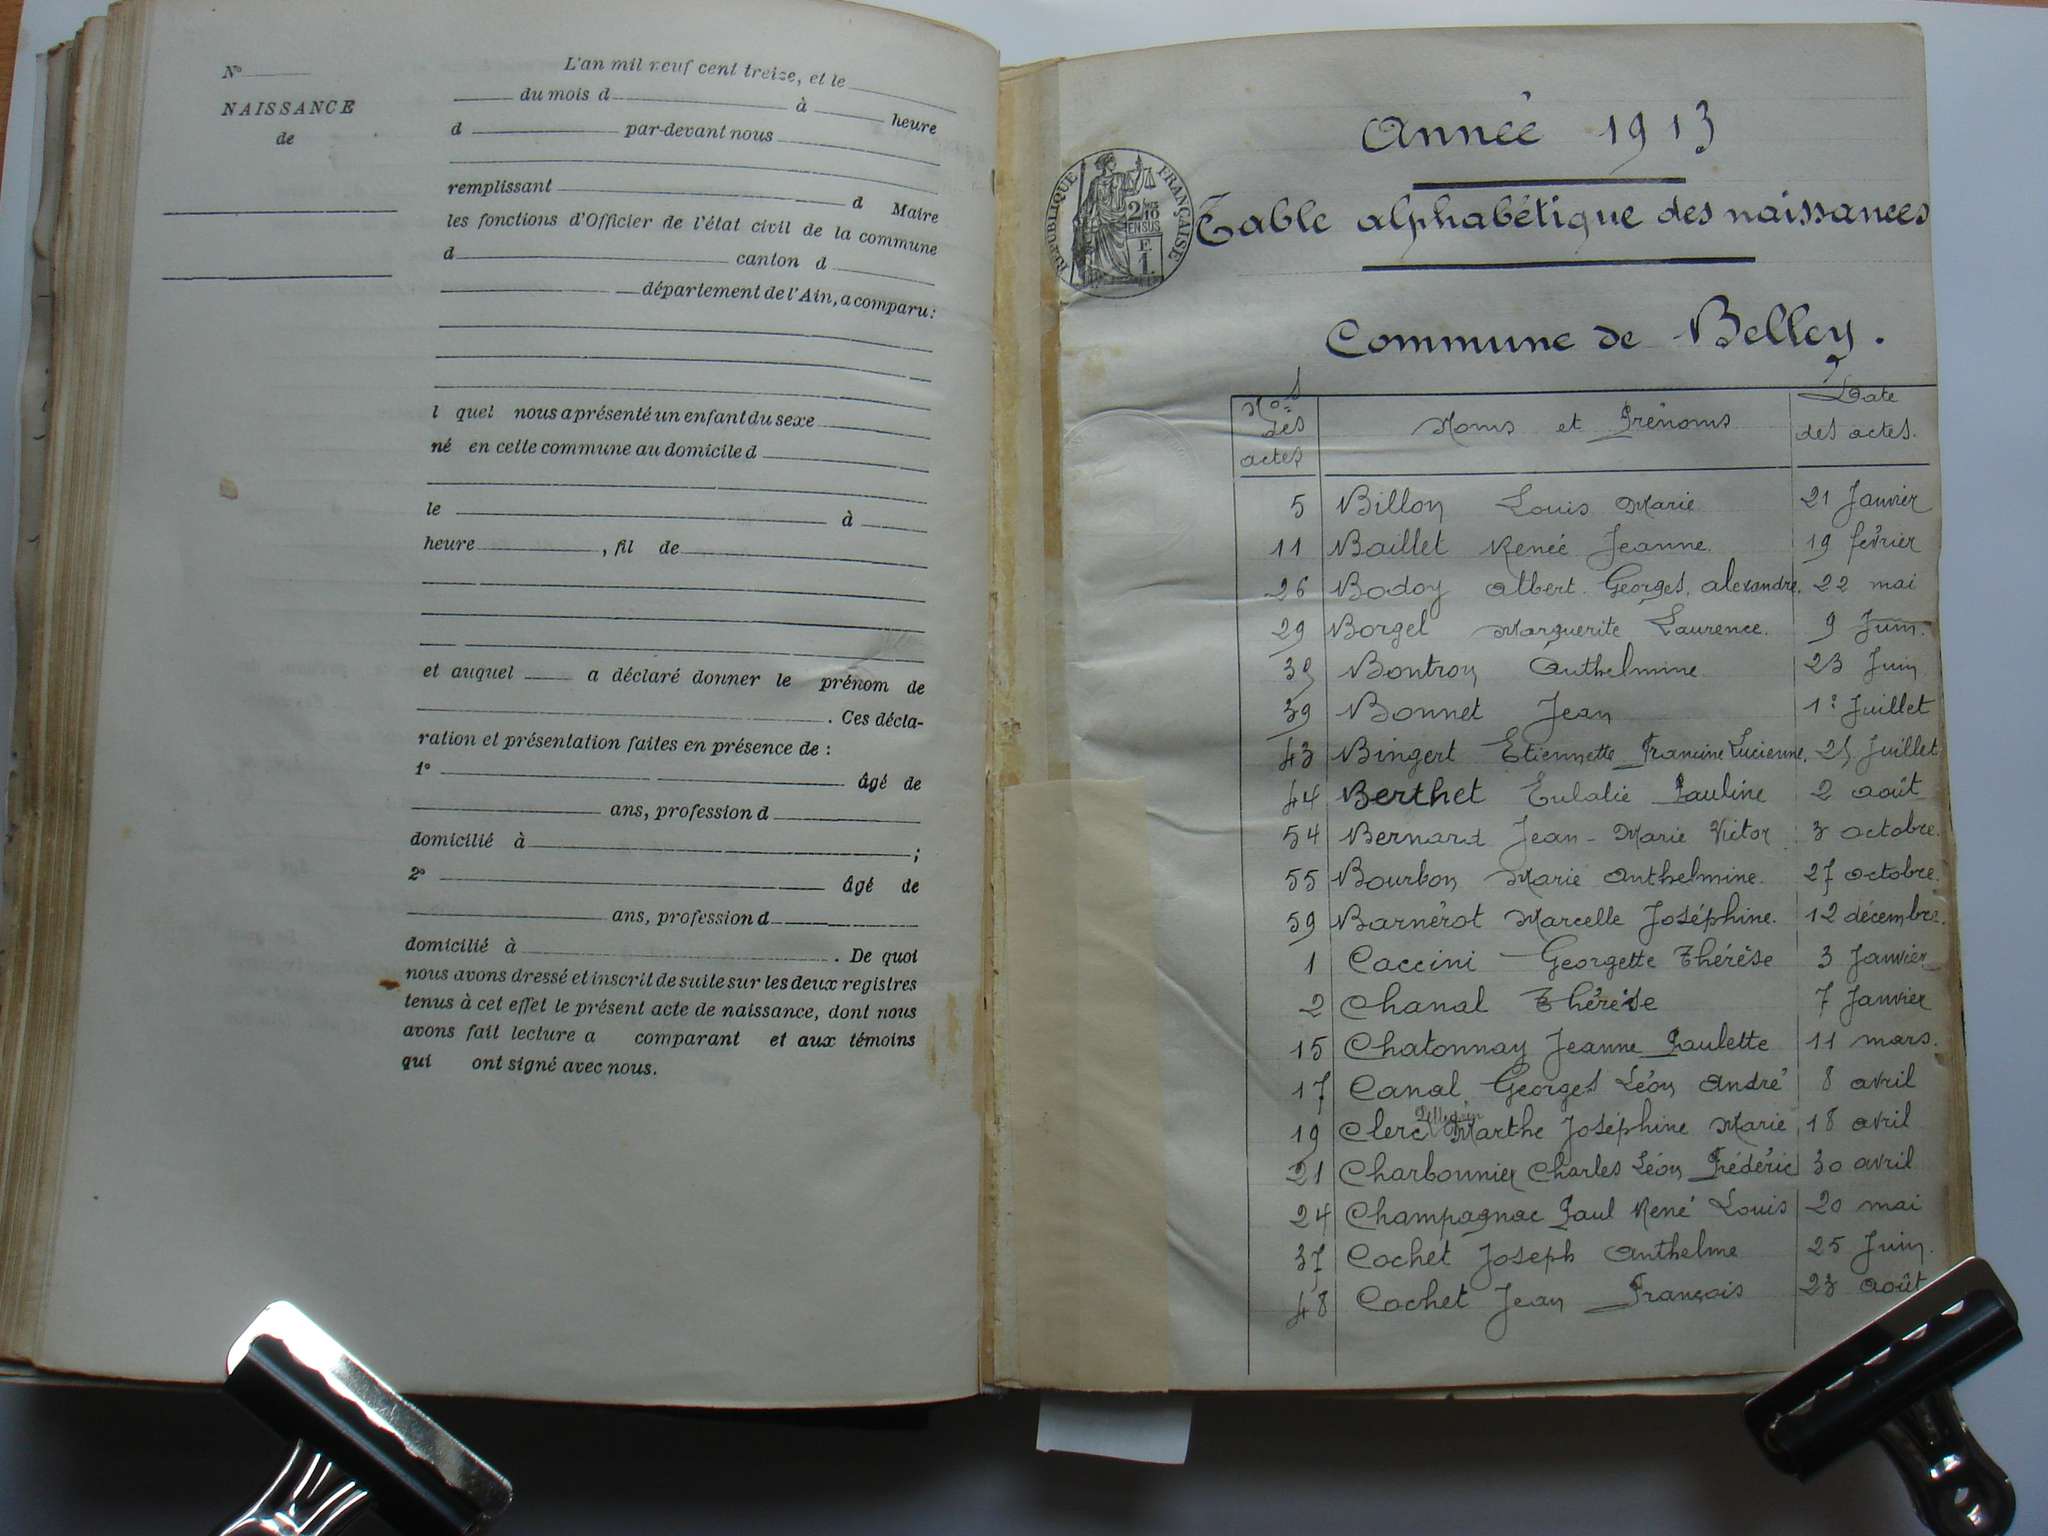 N°
NAISSANCE
de
L'an mil neuf cent treize, et le
du mois d à heure
d par-devant nous
remplissant d Maire
les fonctions d'Officier de l'état civil de la commune
d canton d
département de l'Ain, a comparu :
l quel nous a présenté un enfant du sexe
né en cette commune au domicile d
le à
heure , fil de
et auquel a déclaré donner le prénom de
. Ces décla-
ration et présentation faites en présence de :
1° âgé de
ans, profession d
domicilié à ;
2° âgé de
ans, profession d
domicilié à . De quoi
nous avons dressé et inscrit de suite sur les deux registres
tenus à cet effet le présent acte de naissance, dont nous
avons fait lecture a comparant et aux témoins
qui ont signé avec nous.
Année 1913
RÉPUBLIQUE FRANÇAISE
2/10
EN SUS
F.
1.
Table alphabétique des naissances
Commune de Belley.
Nos des actes Noms et Prénoms Date des actes.
5 Billon Louis Marie 21 Janvier
11 Baillet Renée Jeanne. 19 février
26 Bodoy Albert. Georges, alexandre. 22 mai
29 Borgel Marguerite Laurence. 9 Juin.
35 Bontron Anthelmine. 23 Juin
39 Bonnet Jean 1er Juillet
43 Bingert Etiennette Francine Lucienne. 25 Juillet
44 Berthet Eulalie Pauline 2 août
54 Bernard Jean-Marie Victor 3 octobre.
55 Bourbon Marie Anthelmine. 27 octobre.
59 Barnérot Marcelle Joséphine. 12 décembre.
1 Caccini Georgette Thérèse 3 Janvier
2 Chanal Thérèse 7 Janvier
15 Chatonnay Jeanne Paulette 11 mars.
17 Canal Georges Léon André 8 avril
19 Clerc Marthe Joséphine Marie 18 avril
21 Charbonnier Charles Léon Frédéric 30 avril
24 Champagnac Paul René Louis 20 mai
37 Cochet Joseph Anthelme 25 Juin.
48 Cochet Jean François 23 août